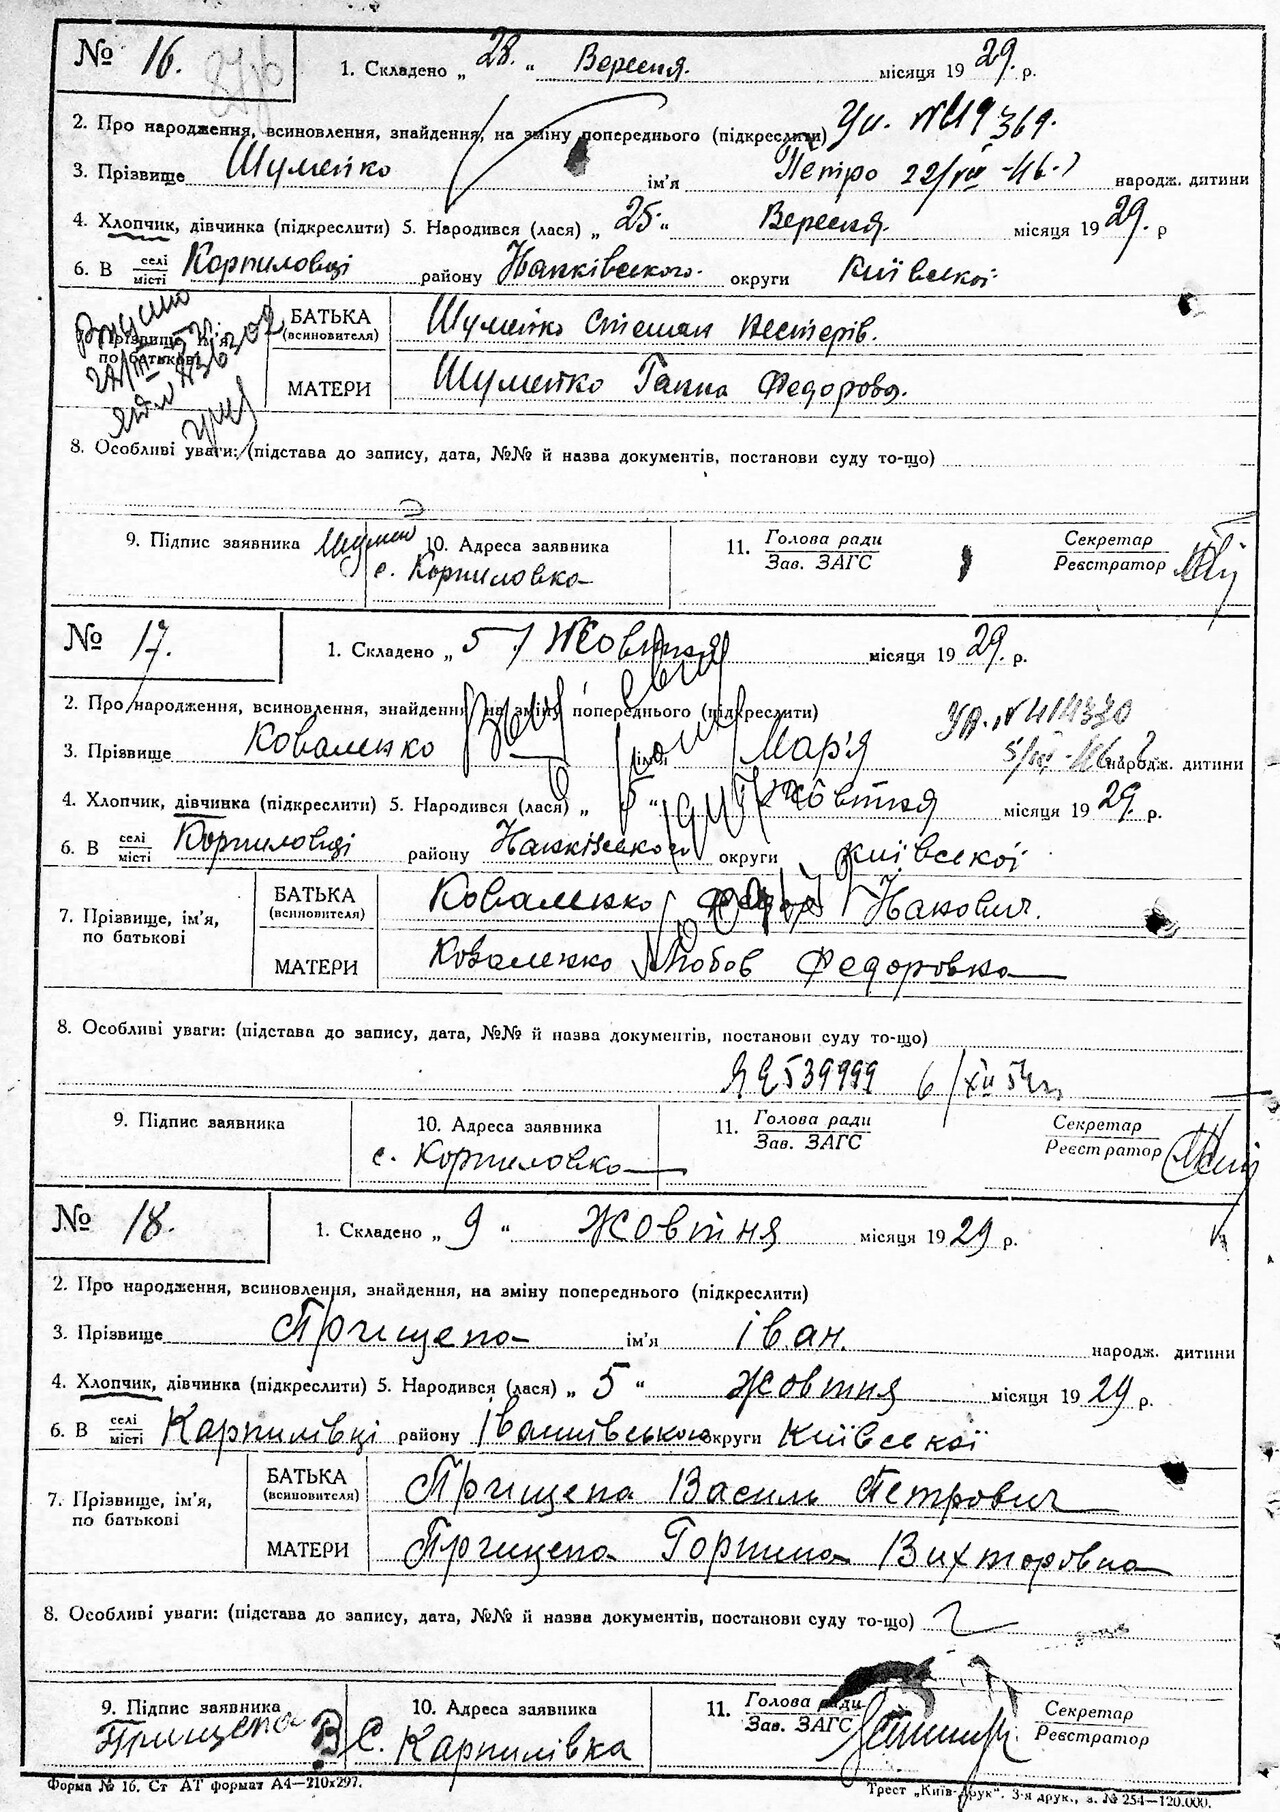 № 16.
1. Складено „ 28. “ Вересня. місяця 19 29. р.
2. Про народження, всиновлення, знайдення, на зміну попереднього (підкреслити)
3. Прізвище Шумейко ім'я Петро 22/VII -46. народж. дитини
4. Хлопчик, дівчинка (підкреслити) 5. Народився (лася) „ 25 “ Вересня. місяця 19 29. р
6. В селі/місті Корпиловці району округи Київської
Прізвище, ім'я, по батькові
БАТЬКА (всиновителя) Шумейко Степан Нестерів.
МАТЕРИ Шумейко Ганна Федорова.
8. Особливі уваги: (підстава до запису, дата, №№ й назва документів, постанови суду то-що)
9. Підпис заявника Шумей 10. Адреса заявника 11. Голова ради / Зав. ЗАГС Секретар / Реєстратор
с. Корпиловка
№ 17.
1. Складено „ 5 Жовтня місяця 19 29. р.
2. Про народження, всиновлення, знайдення, на зміну попереднього (підкреслити)
3. Прізвище Коваленко ім'я Мар'я народж. дитини
4. Хлопчик, дівчинка (підкреслити) 5. Народився (лася) „ 5 “ Жовтня місяця 19 29. р.
6. В селі/місті Корпиловці району округи Київської
7. Прізвище, ім'я, по батькові
БАТЬКА (всиновителя) Коваленко
МАТЕРИ Коваленко Любов Федоровна
8. Особливі уваги: (підстава до запису, дата, №№ й назва документів, постанови суду то-що)
539999 6/XII 54
9. Підпис заявника 10. Адреса заявника 11. Голова ради / Зав. ЗАГС Секретар / Реєстратор
с. Корпиловка
№ 18.
1. Складено „ 9 “ жовтня місяця 19 29 р.
2. Про народження, всиновлення, знайдення, на зміну попереднього (підкреслити)
3. Прізвище Прищепа ім'я Іван. народж. дитини
4. Хлопчик, дівчинка (підкреслити) 5. Народився (лася) „ 5 “ жовтня місяця 19 29 р.
6. В селі/місті Карпилівці району округи Київської
7. Прізвище, ім'я, по батькові
БАТЬКА (всиновителя) Прищепа Василь Петрович
МАТЕРИ Прищепа Горпина Вихторовна
8. Особливі уваги: (підстава до запису, дата, №№ й назва документів, постанови суду то-що)
9. Підпис заявника 10. Адреса заявника 11. Голова ради / Зав. ЗАГС Секретар / Реєстратор
Прищепа В С. Карпилівка
Форма № 16. Ст АТ формат А4—210x297.
Трест „Київ-Друк“. 3-я друк., з. № 254—120.000.